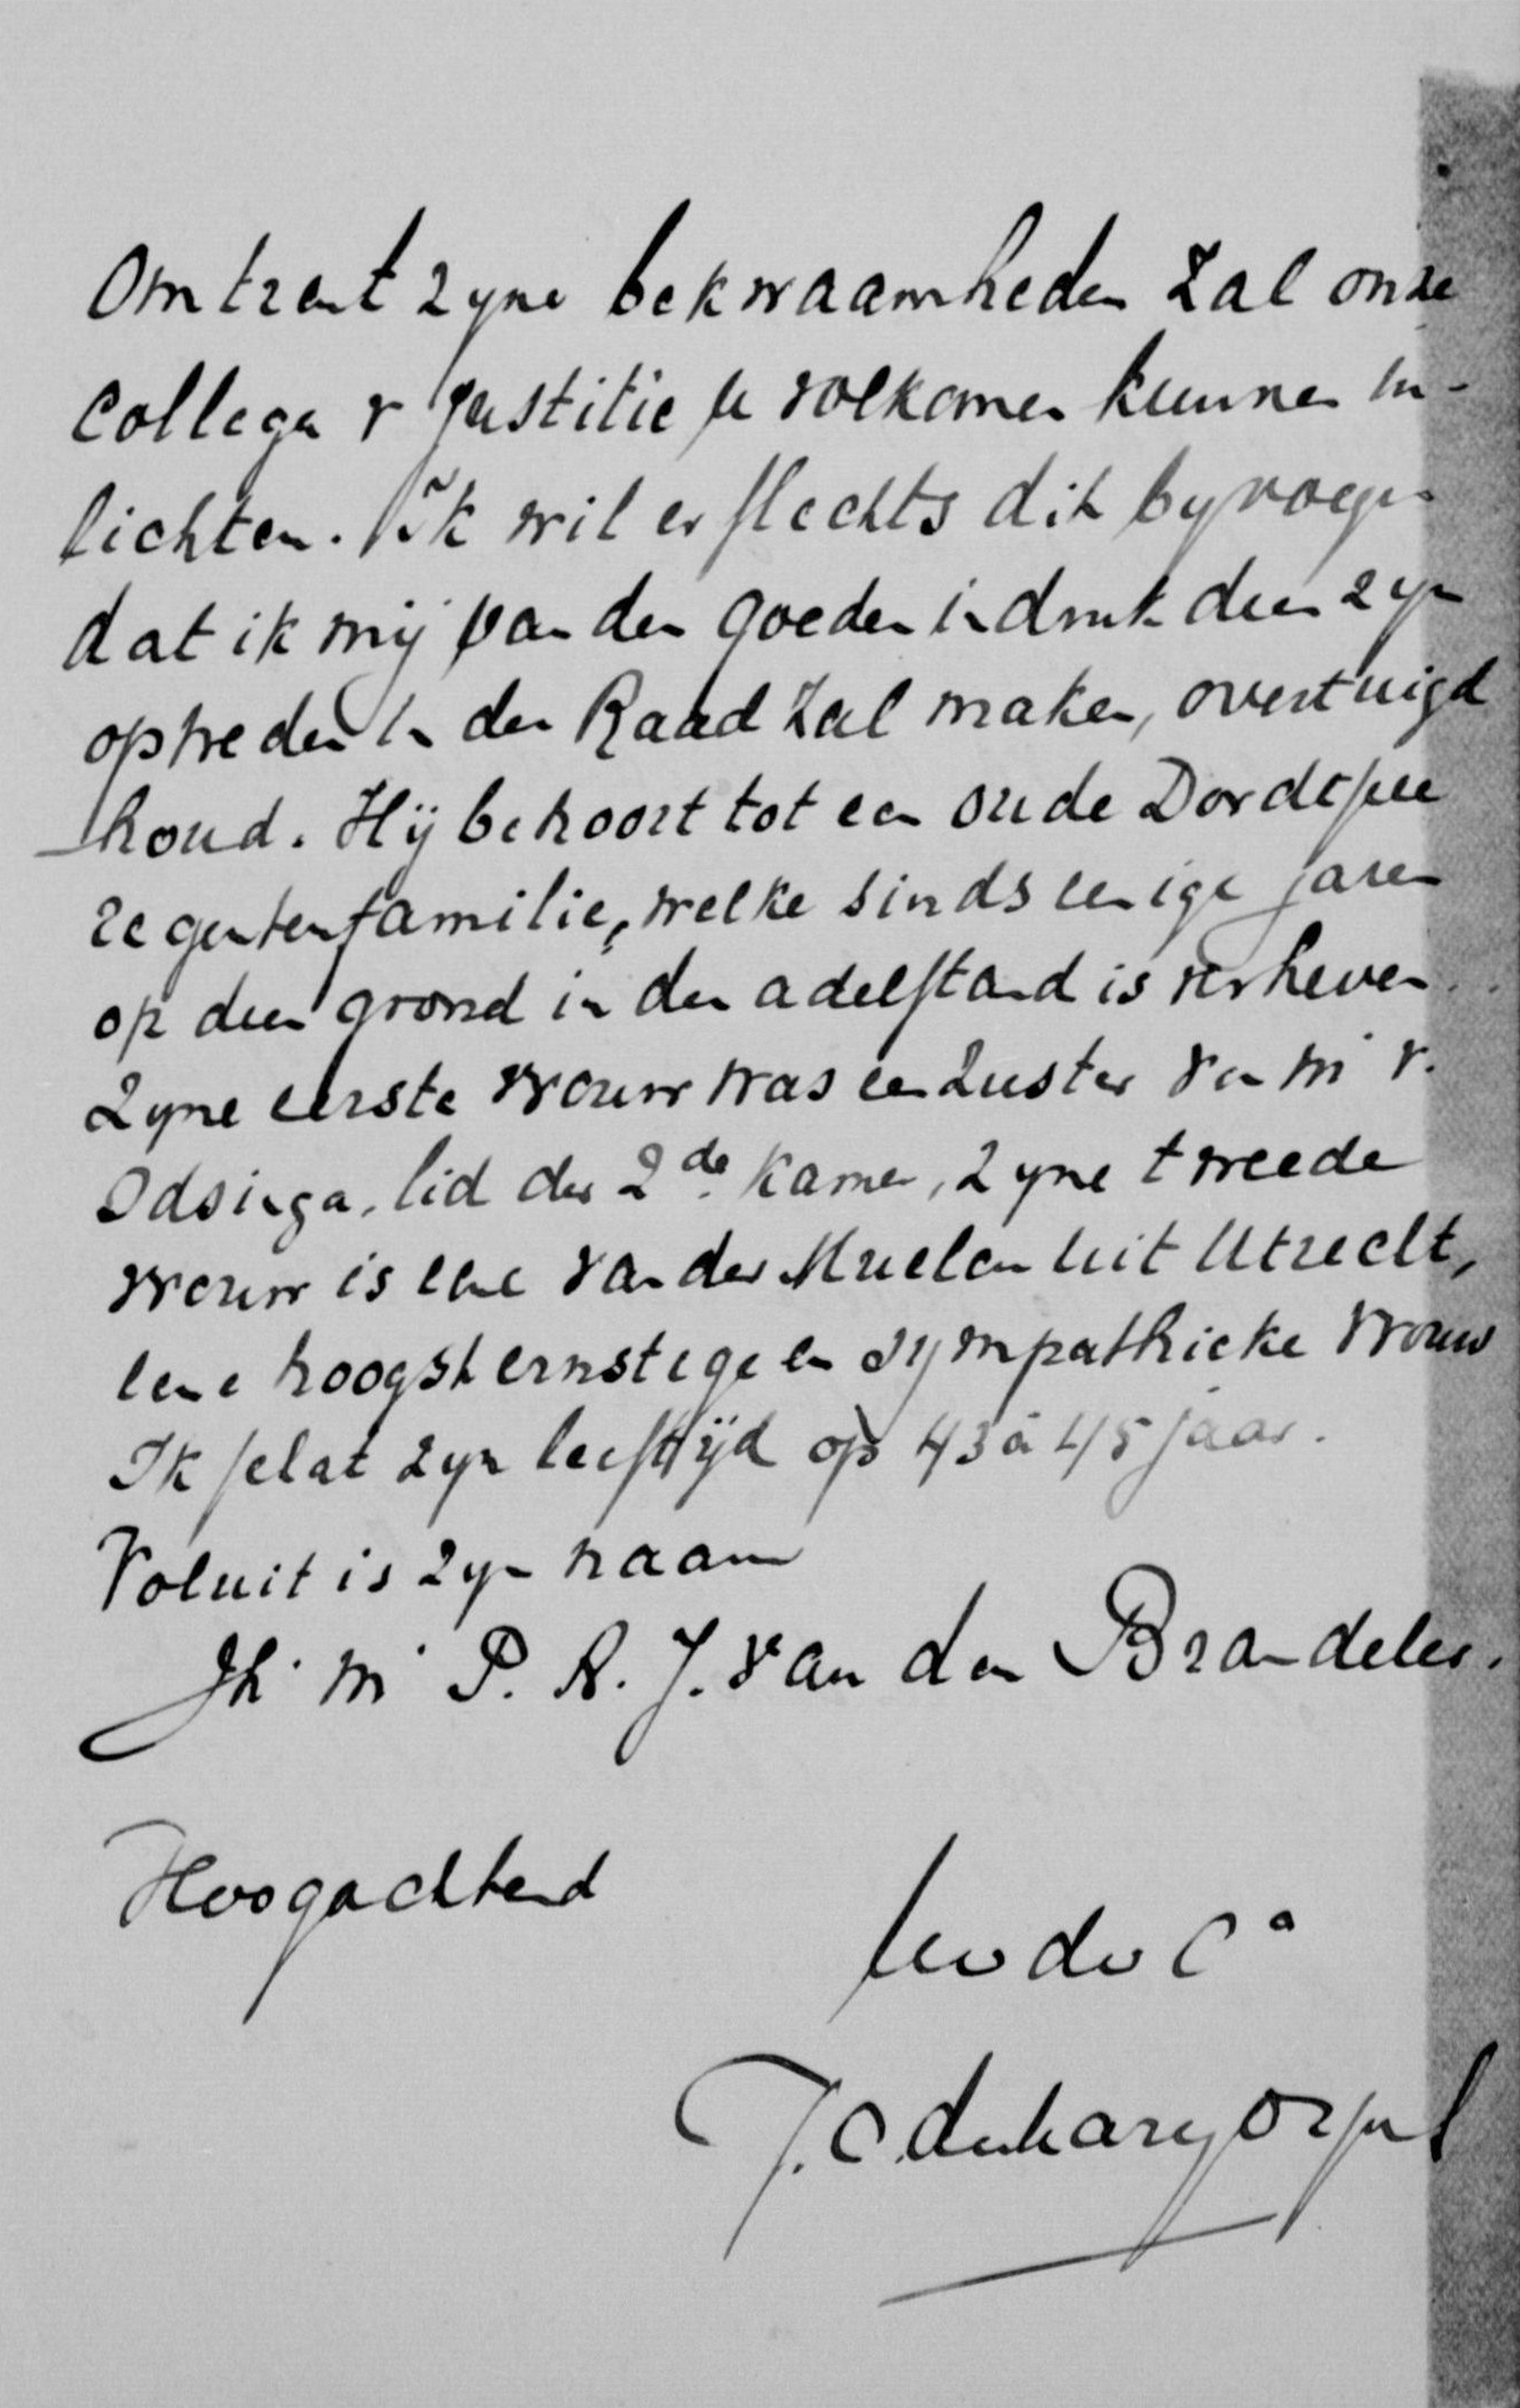 Omtrent zyne bekwaamheden zal onze
collega v Justitie U volkomen kunnen in-
lichten. Ik wil er slechts dit byvoegen
dat ik mij van den goeden indruk dien zyn
optreden in den Raad zal maken, overtuigd
houd. Hij behoort tot een oude Dordtsche
regentenfamilie, welke sinds eenige jaren
op dien grond in den adelstand is verheven.
Zyne eerste vrouw was een zuster van Mr v.
Idsinga, lid der 2de Kamer, zyne tweede
vrouw is eene van der Muelen uit Utrecht,
eene hoogst ernstige en sympathieke vrouw
Ik schat zyn leeftijd op 43 à 45 jaar.
Voluit is zyn naam
Jhr Mr P. R. J. van den Brandeler.
Hoogachtend
Uw dv Ca